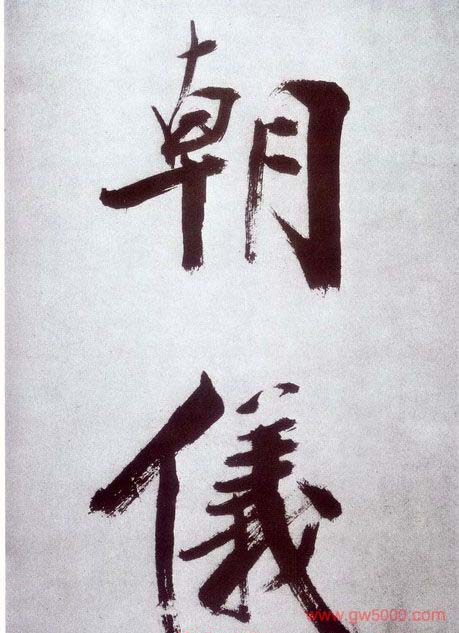 朝
儀
www.gw5000.com